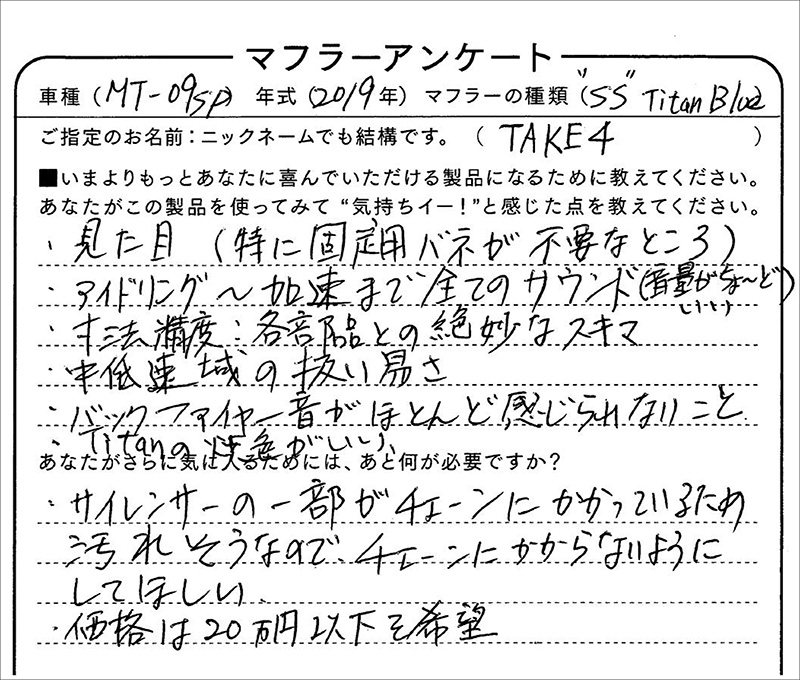 マフラーアンケート
車種（MT-09SP） 年式（2019年） マフラーの種類（"SS" Titan Blue
ご指定のお名前：ニックネームでも結構です。（ TAKE4 ）
■いまよりもっとあなたに喜んでいただける製品になるために教えてください。
あなたがこの製品を使ってみて“気持ちイー！”と感じた点を教えてください。
・見た目（特に固定用バネが不要なところ）
・アイドリング〜加速まで全てのサウンド（音量がちょ〜ど
いい）
・寸法精度：各部品との絶妙なスキマ
・中低速域の扱い易さ
・バックファイヤー音がほとんど感じられないこと
・Titanの焼色がいい。
あなたがさらに気に入るためには、あと何が必要ですか？
・サイレンサーの一部がチェーンにかかっているため
汚れそうなので、チェーンにかからないように
してほしい。
・価格は20万円以下を希望